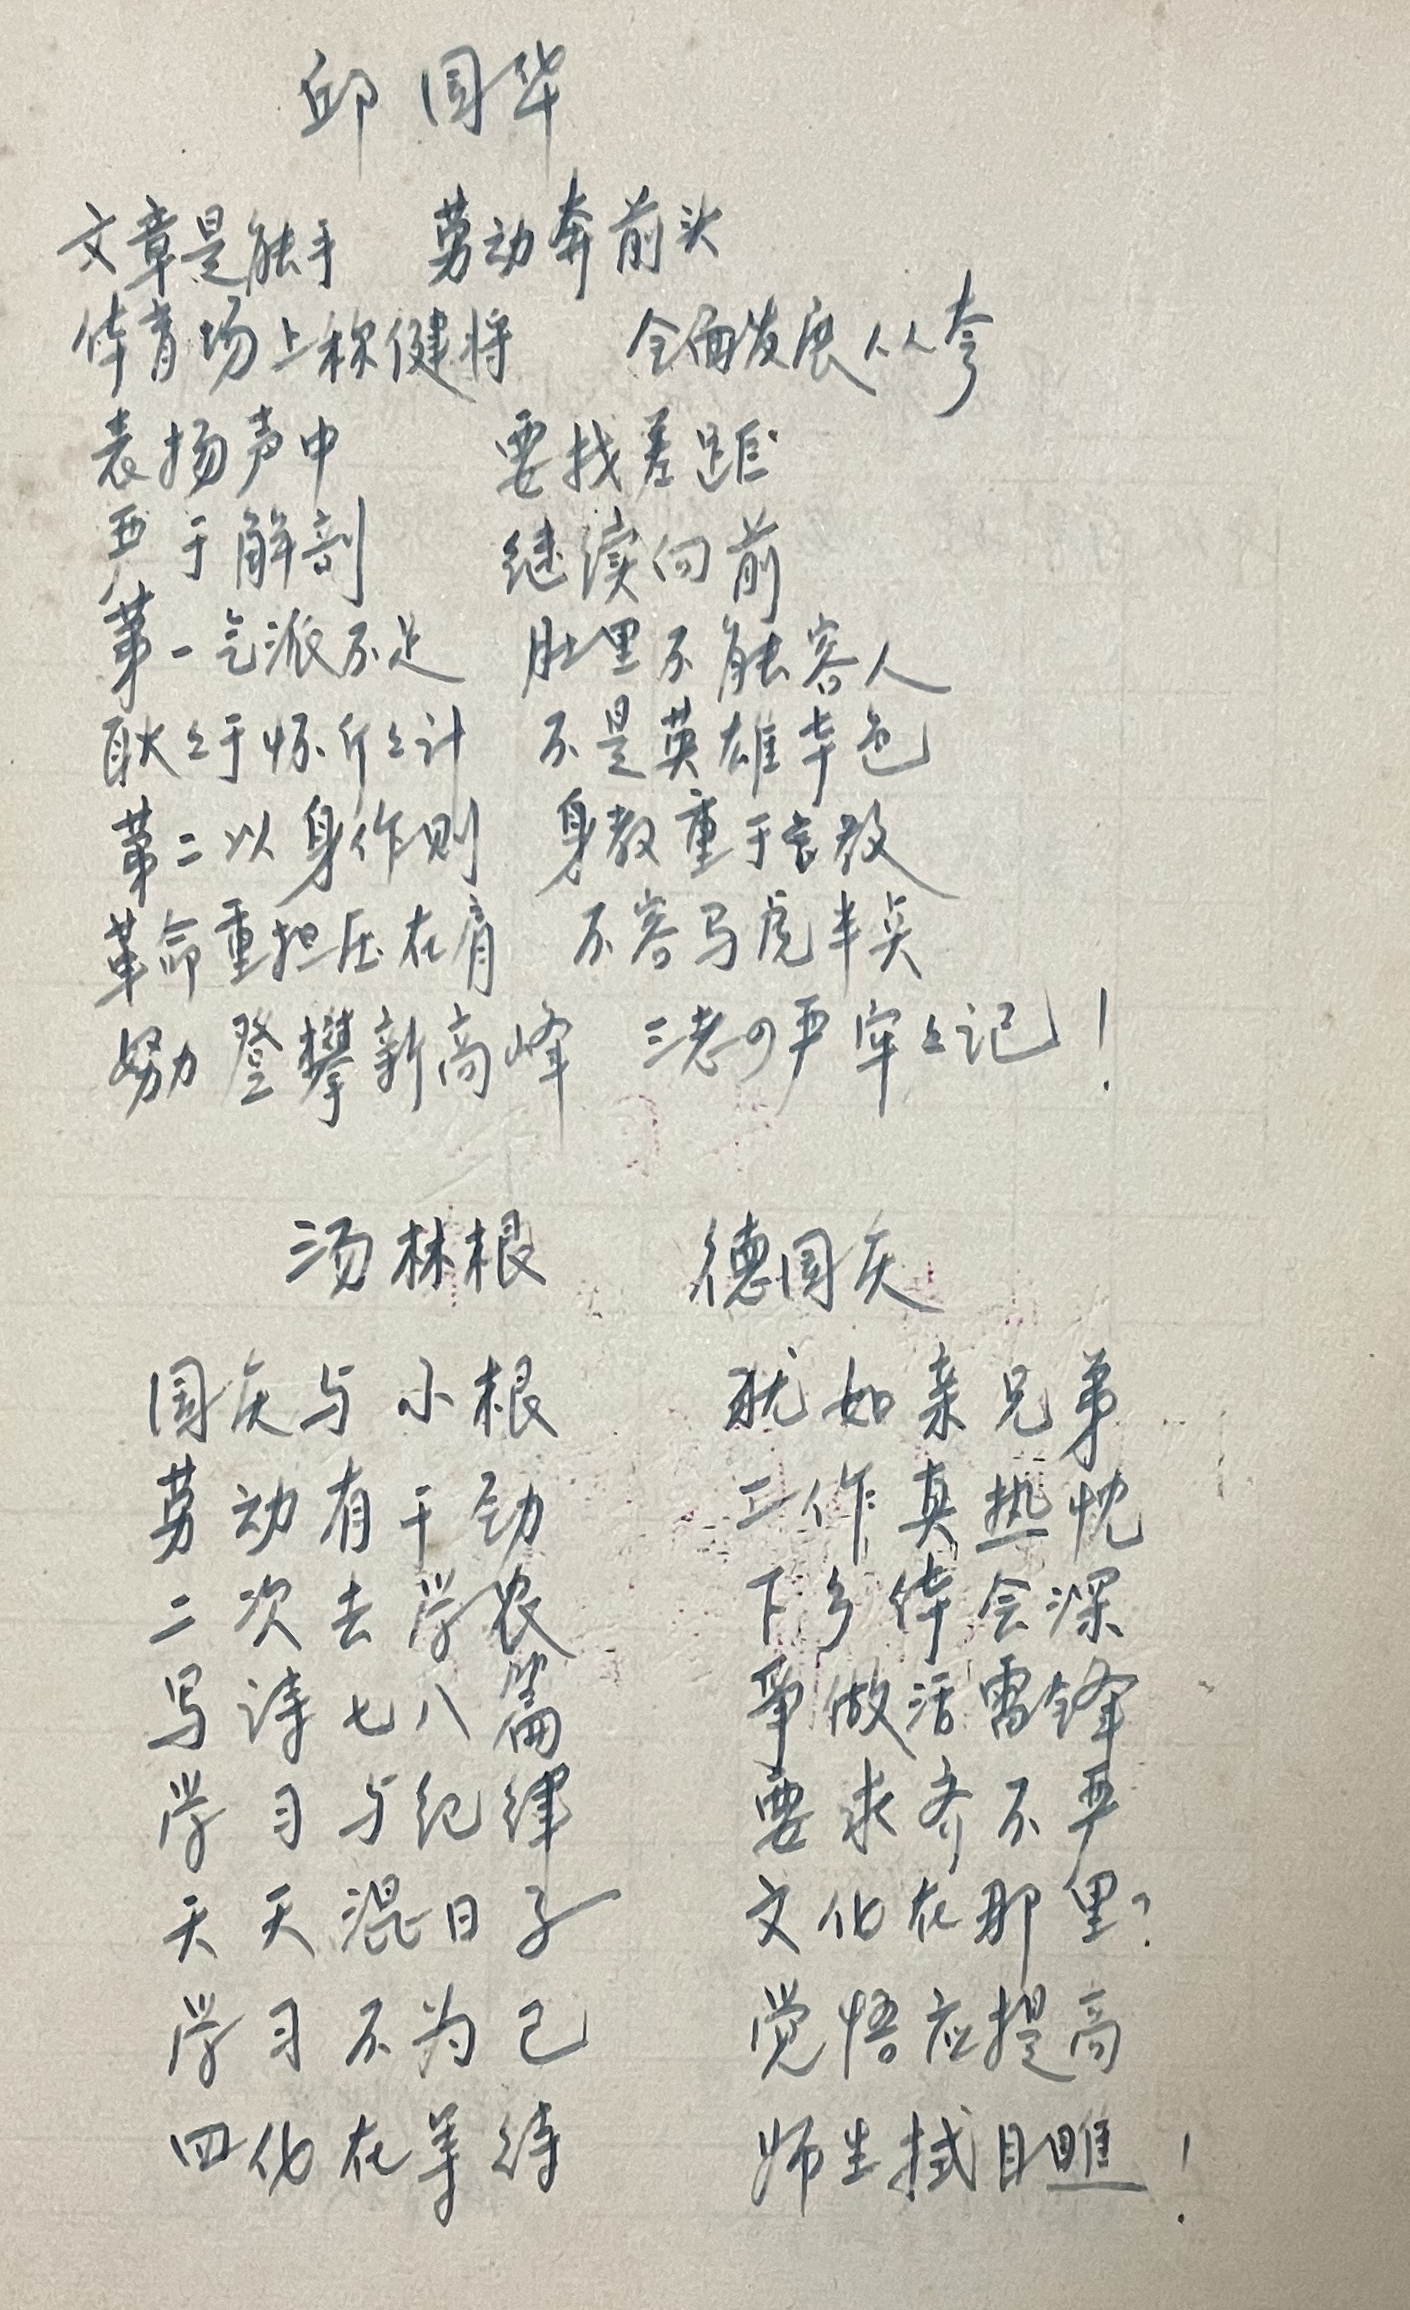 邱国华
文章是能手 劳动奔前头
体育场上称健将 全面发展人人夸
表扬声中 要找差距
严于解剖 继续向前
第一气派不足 肚里不能容人
耿々于怀斤々计 不是英雄本色
第二以身作则 身教重于言教
革命重担压在肩 不容马虎半点
努力登攀新高峰 三老四严牢々记！
汤林根 德国庆
国庆与小根 犹如亲兄弟
劳动有干劲 工作真热忱
二次去学农 下乡体会深
写诗七八篇 争做活雷锋
学习与纪律 要求齐不严
天天混日子 文化在那里？
学习不为己 觉悟应提高
四化在等待 师生拭目瞧！